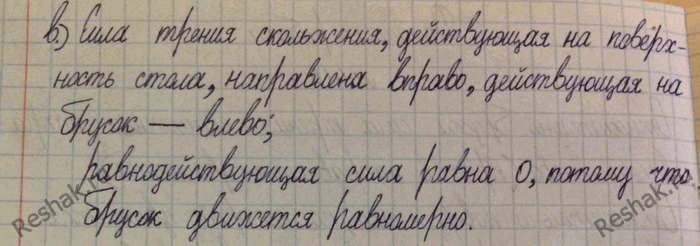 в.) Сила трения скольжения, действующая на поверх-
ность стола, направлена вправо, действующая на
брусок — влево;
равнодействующая сила равна 0, потому что
брусок движется равномерно.
Reshak.ru